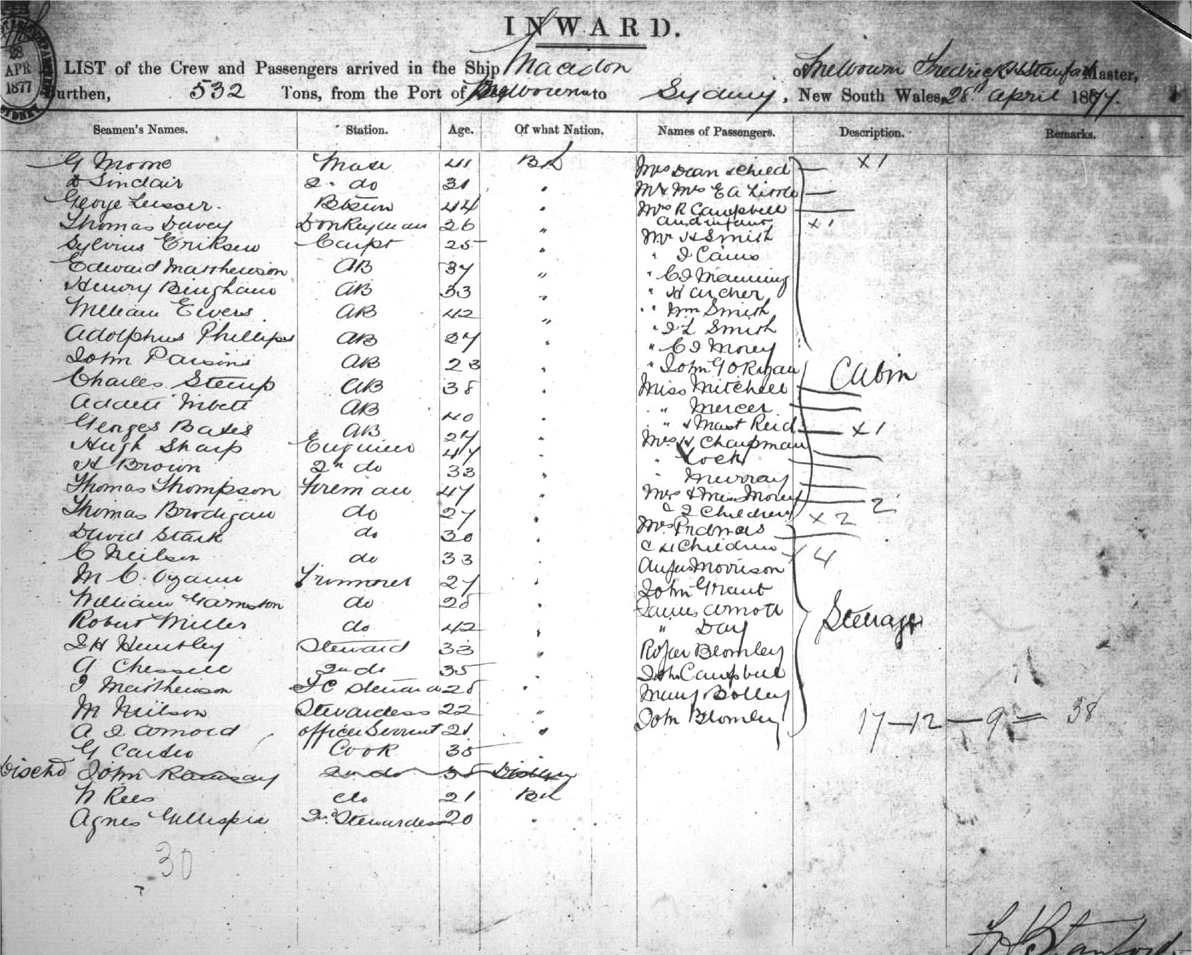 28
APR
1877
INWARD.
LIST of the Crew and Passengers arrived in the Ship Macedon of Melbourn Fredrick Stanford Master,
Burthen, 532 Tons, from the Port of Melbourne to Sydney, New South Wales, 28th April 1877.
Seamen's Names. Station. Age. Of what Nation. Names of Passengers. Description. Remarks.
G Moore Mate 41 Mrs Dean & Child x1
Sinclair 2nd do 31 Mr & Mrs E A
George 44 Mrs R Campbell
and infant x1
Thomas Davey Donkeyman 26
Sylvius Eriksen Carpt 25 Mr H Smith
" J
Edward Matthewson AB 37 " C J Manning
Henry Bingham AB 33 " H Archer
William AB 42 " Wm Smith
" J L Smith
Adolphus Phillips AB 27 " C J Morey
John Parsons AB 23 " John
Cabin
Charles AB 38 Miss Mitchell
AB 40 " Mercer
Georges Bates AB 27 " & Mast Reid x1
Hugh Sharp Engineer 47 Mrs H Chapman
H Brown 2nd do 33 " Lock
" Murray
Thomas Thompson Fireman 47 Mrs & Miss Morey
Thomas Brodigan do 27 & 2 Children 2 x2
David Stark do 30 Mrs
C Neilson do 33 & 4 Children 4
M C 27 Angus Morrison
John Grant
William do 28 James
Robert Miller do 42 " Day
J H Huntley Steward 33 Roger Blomley
Steerage
A 2nd do 35 John Campbell
J Matthewson Steward 28 Mary
M Neilson Stewardess 22 John Blomley
17-12-9= 38
A J Arnold officer Servant 21
G Cook 35
Dischd John Ramsay 2nd do 35
N Rees do 21
Agnes Gillespie 2nd Stewardess 20
30
Stanford